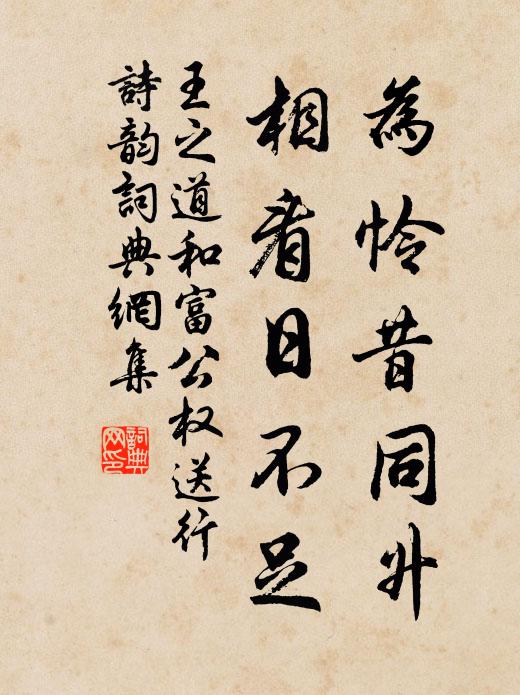 為怜昔同升
相看日不足
王之道和富公权送行
詩韵詞典網集
詞典
网印